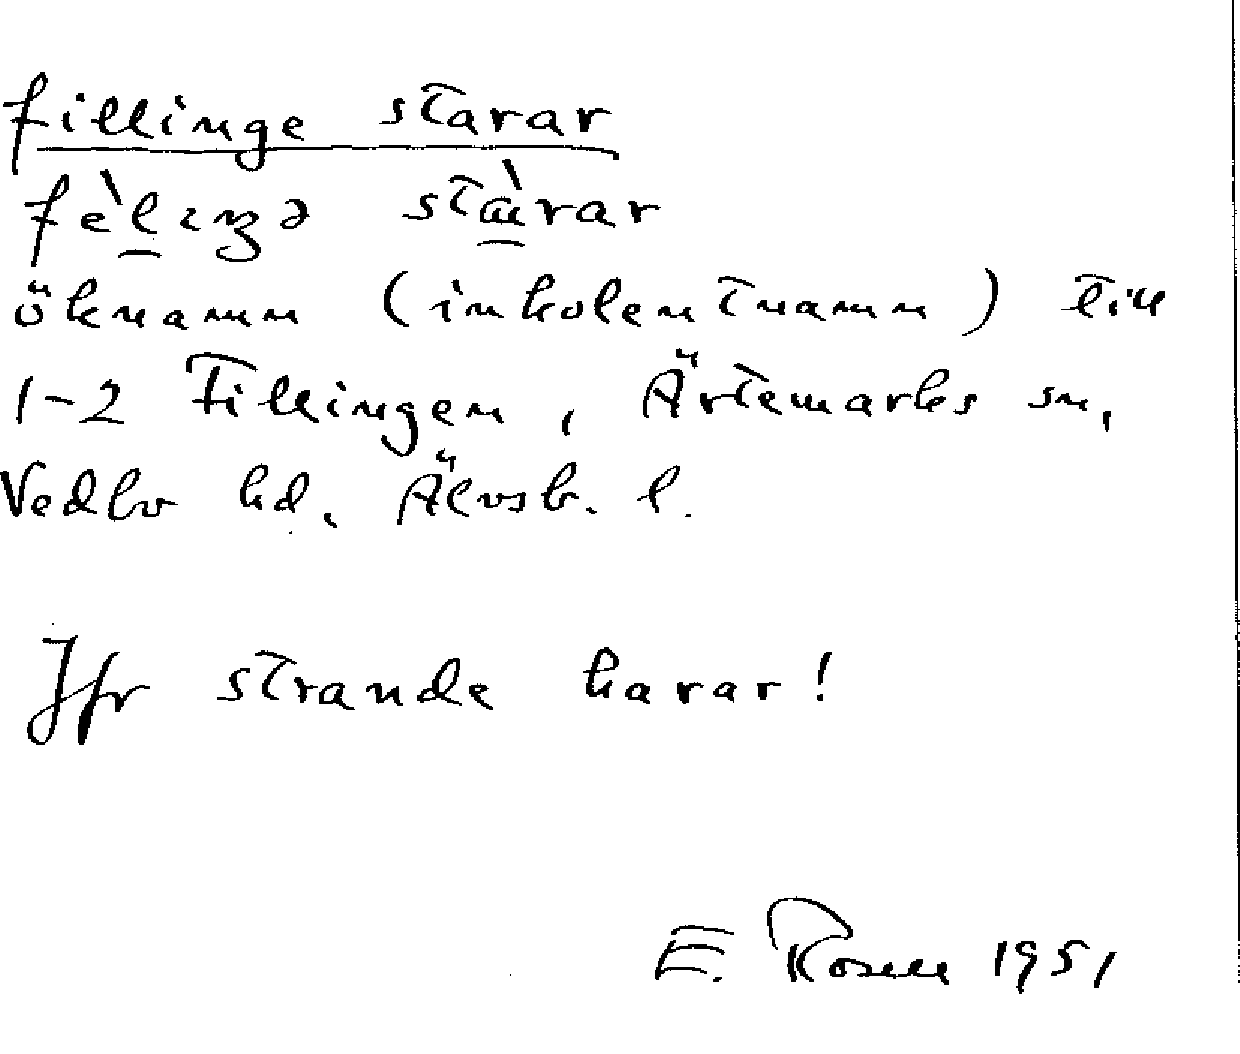 fillinge starar
fèlıŋə stæ̀rar
öknamn (inkolentnamn) till
1-2 Fillingen, Ärtemarks sn,
Vedbo hd, Älvsb. l.
Jfr strande harar!
E. Rosell 1951